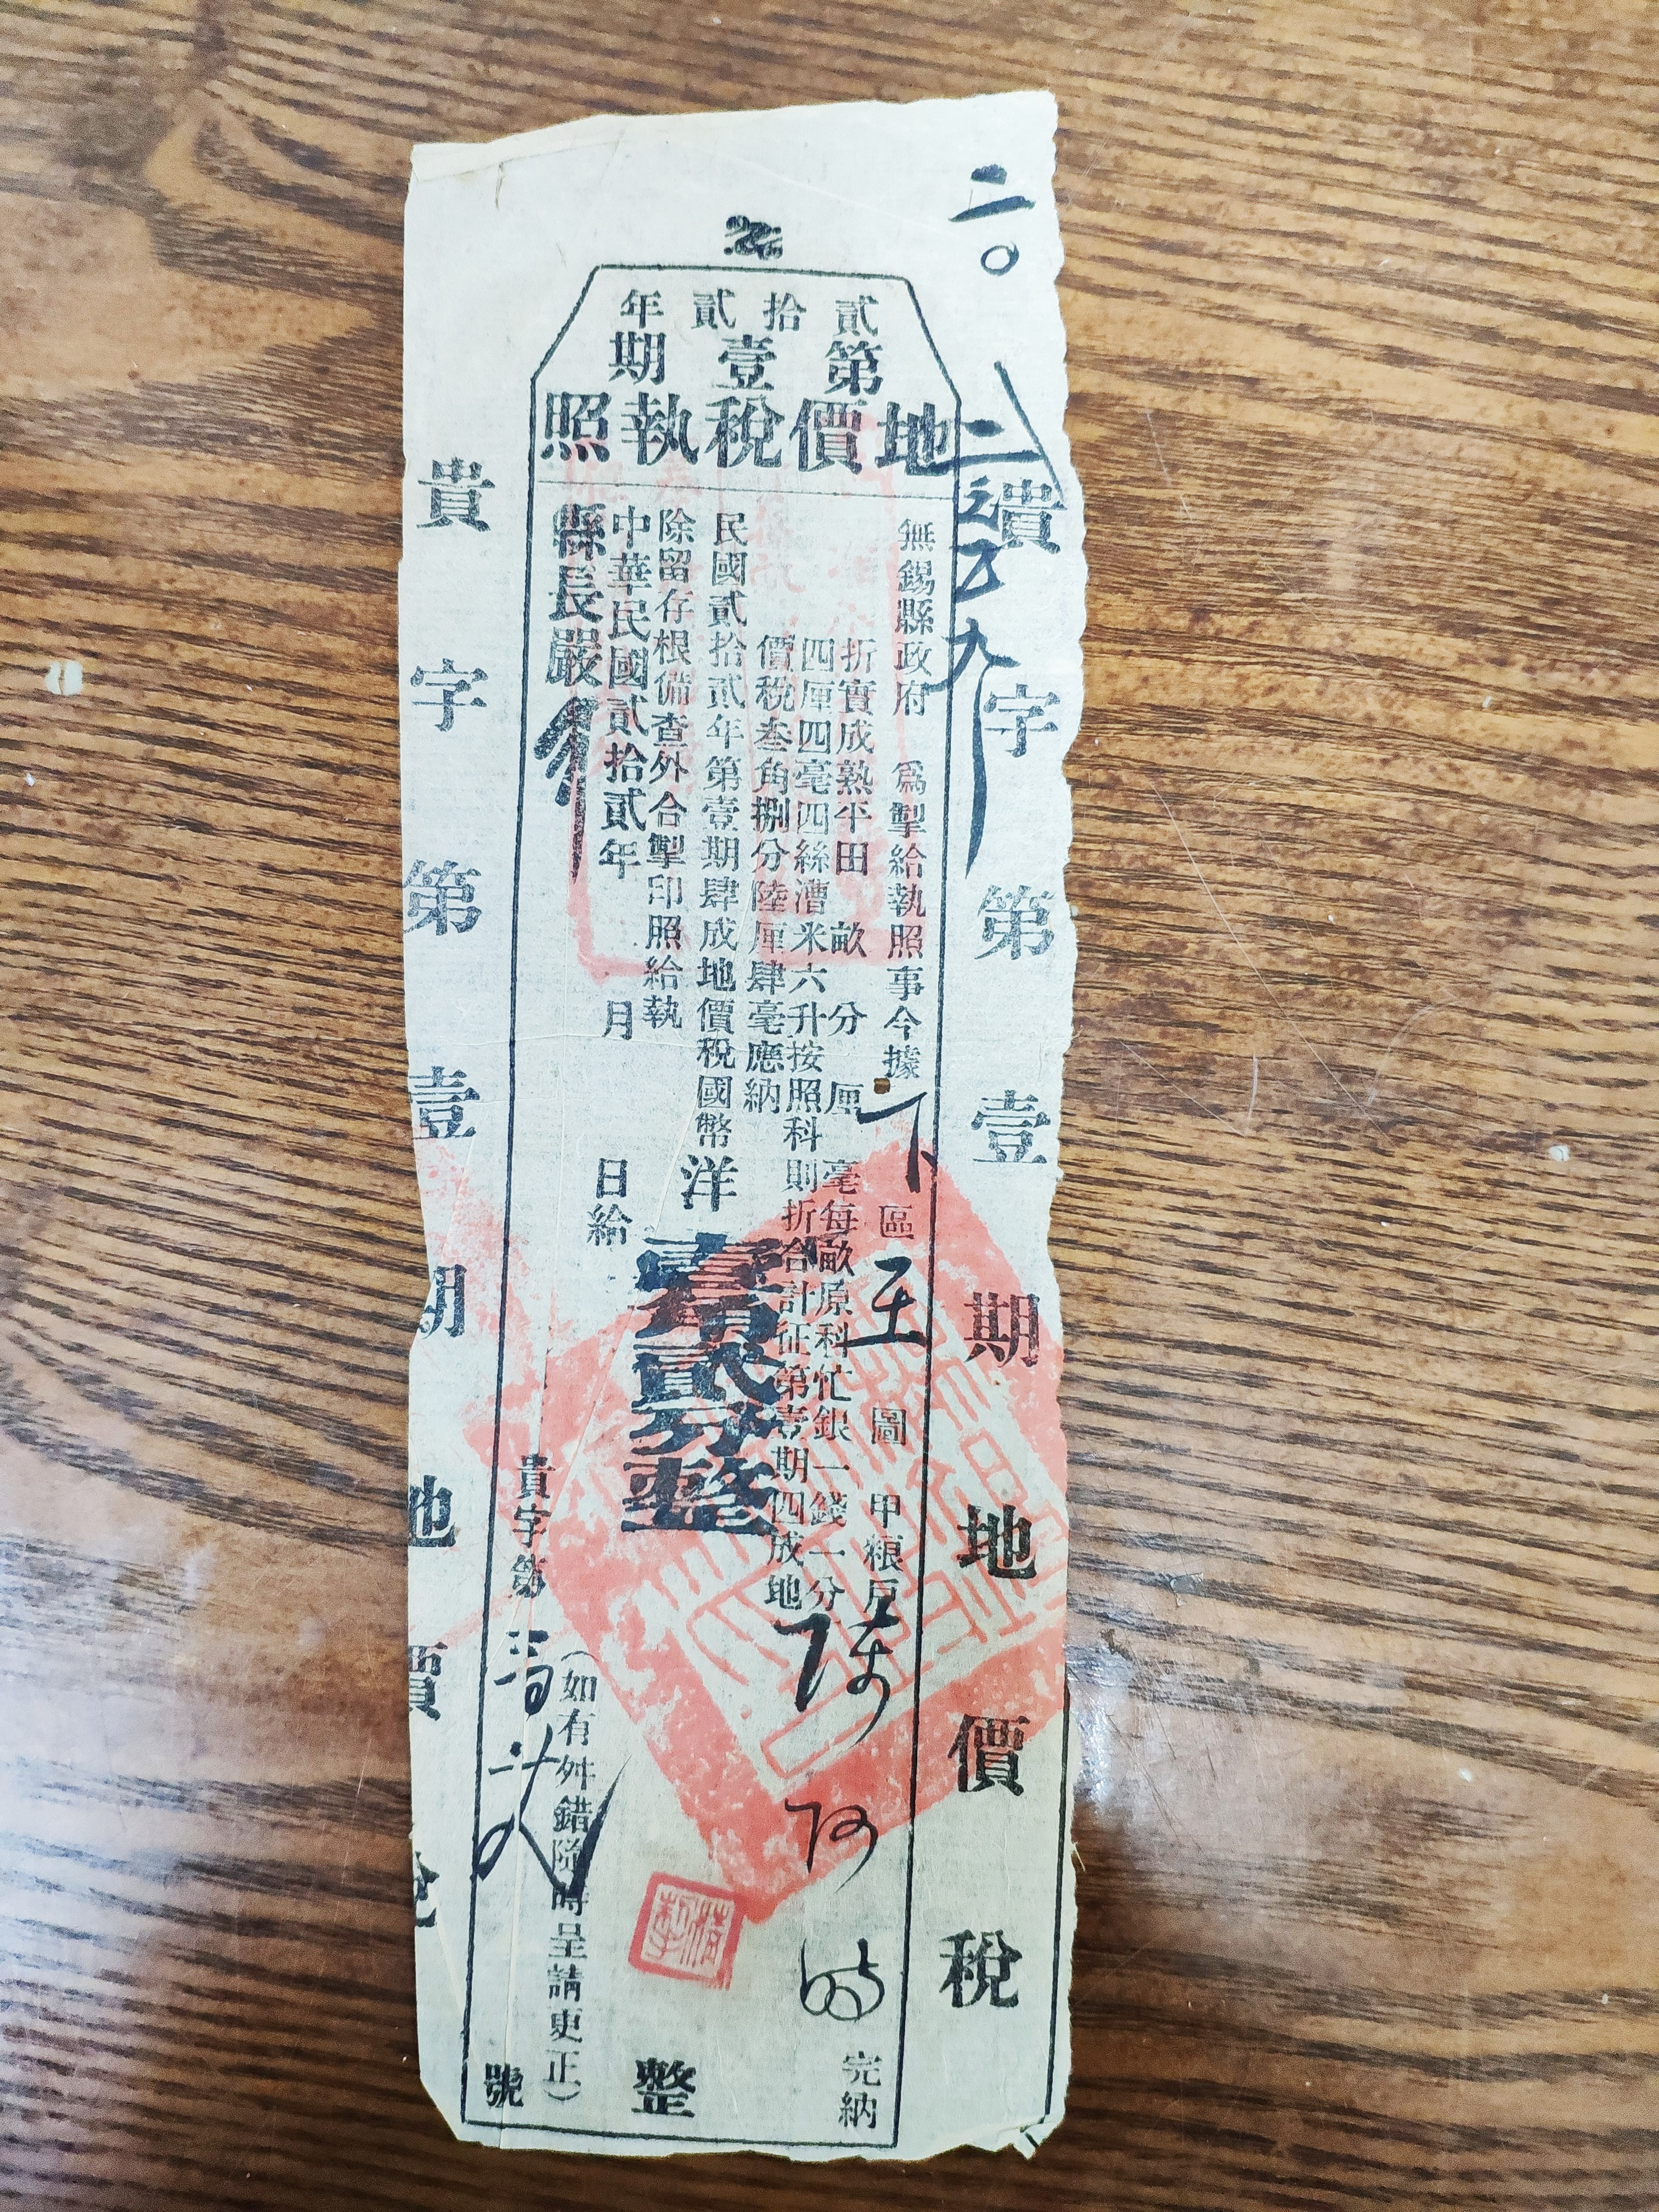 二〇
貴字第壹期地價稅
貳拾貳年
第壹期
地價稅執照
無錫縣政府 為掣給執照事今據 下區 圖 甲糧戶陳阿 完納
折實成熟平田 畝 分 厘 毫每畝原科忙銀一錢一分
四厘四毫四絲漕米六升按照科則折合計征第壹期四成地
價稅叁角捌分陸厘肆毫應納
民國貳拾貳年第壹期肆成地價稅國幣洋壹角貳分整 整
除留存根備查外合掣印照給執
中華民國貳拾貳年 月 日給
(如有舛錯隨時呈請更正)
縣長嚴
貴字第 號
貴字第壹期地價稅